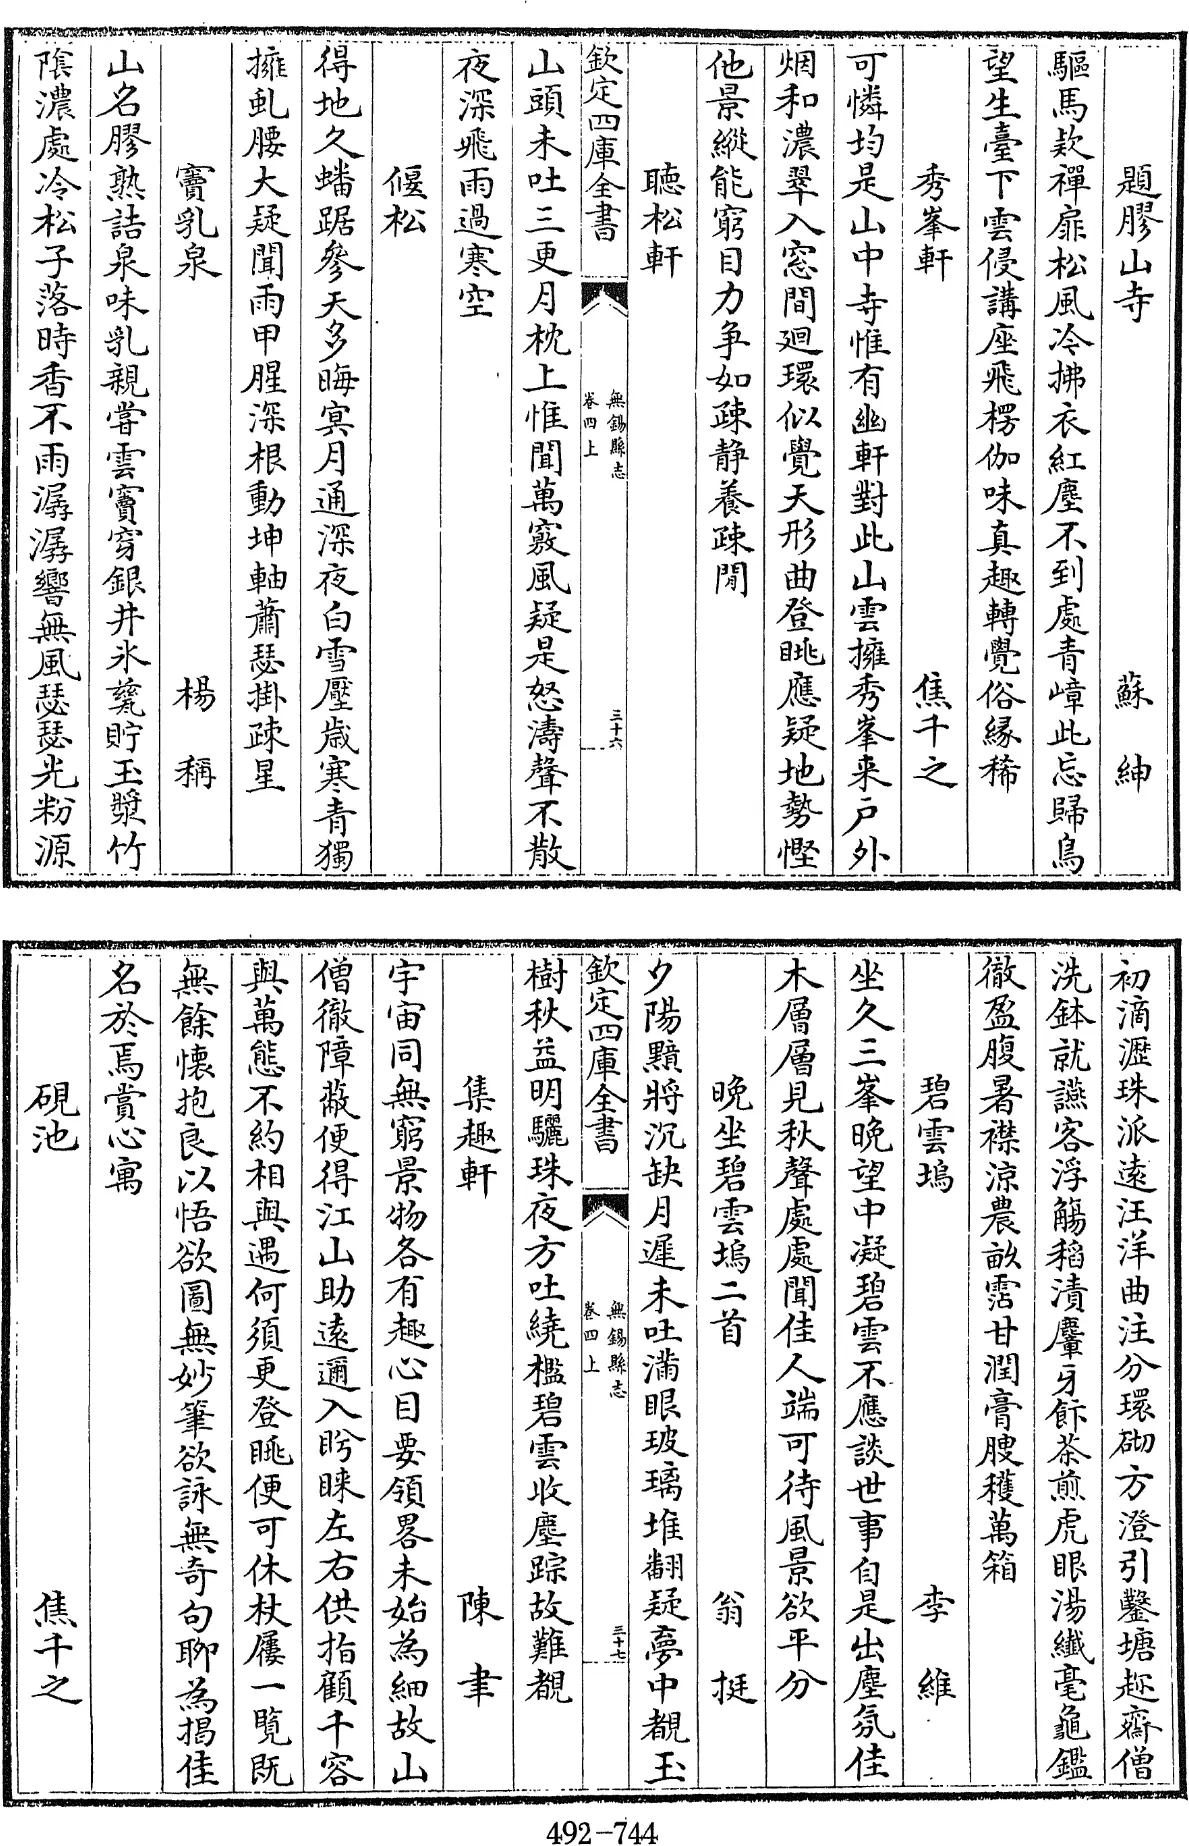 題膠山寺 蘇紳
驅馬欵禪扉松風冷拂衣紅塵不到處青嶂此忘歸鳥
望生臺下雲侵講座飛楞伽味真趣轉覺俗緣稀
秀峯軒 焦千之
可憐均是山中寺惟有幽軒對此山雲擁秀峯来户外
烟和濃翠入窓間迴環似覺天形曲登眺應疑地勢慳
他景縱能窮目力争如踈静養踈閒
聽松軒
欽定四庫全書
無錫縣志
卷四上
三十六
山頭未吐三更月枕上惟聞萬竅風疑是怒濤聲不散
夜深飛雨過寒空
偃松
得地久蟠踞參天多晦寞月通深夜白雪壓歳寒青獨
擁虬腰大疑聞雨甲腥深根動坤軸蕭瑟掛踈星
竇乳泉 楊稱
山名膠熟詰泉味乳親嘗雲竇穿銀井氷甃貯玉漿竹
陰濃處冷松子落時香不雨潺潺響無風瑟瑟光粉源
初滴瀝珠派遠汪洋曲注分環砌方澄引鑿塘趂齋僧
洗鉢就讌客浮觴稻漬麞牙飰茶煎虎眼湯纎毫龜鑑
徹盈腹暑襟涼農畝霑甘潤膏腴穫萬箱
碧雲塢 李維
坐久三峯晩望中凝碧雲不應談世事自是出塵氛佳
木層層見秋聲處處聞佳人端可待風景欲平分
晩坐碧雲塢二首 翁挺
夕陽黯將沉缺月遲未吐滿眼玻璃堆翻疑夢中覩玉
欽定四庫全書
無錫縣志
卷四上
三十七
樹秋益明驪珠夜方吐繞檻碧雲收塵踪故難覩
集趣軒 陳聿
宇宙同無窮景物各有趣心目要領畧未始為細故山
僧徹障蔽便得江山助遠邇入盻睞左右供指顧千容
與萬態不約相與遇何須更登眺便可休杖屨一覧既
無餘懐抱良以悟欲圖無妙筆欲詠無竒句聊為揭佳
名於焉賞心寓
硯池 焦千之
492-744